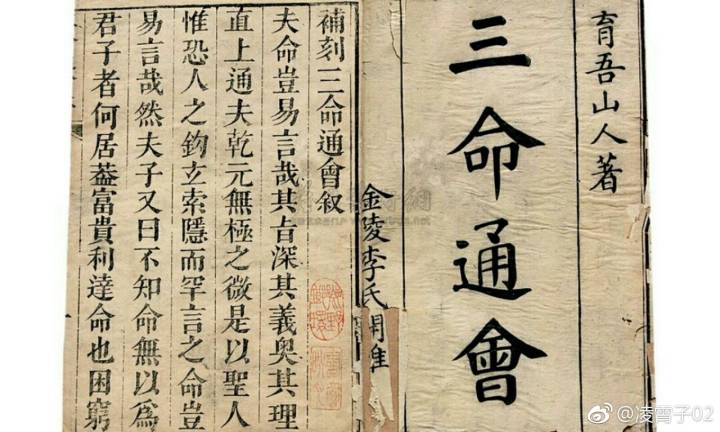 育吾山人著
三命通會
金陵李氏
補刻三命通會叙
夫命豈易言哉其旨深其義奥其理
直上通夫乾元無極之微是以聖人
惟恐人之鈎玄索隱而罕言之命豈
易言哉然夫子又曰不知命無以為
君子者何居葢富貴利達命也困窮
@凌霄子02